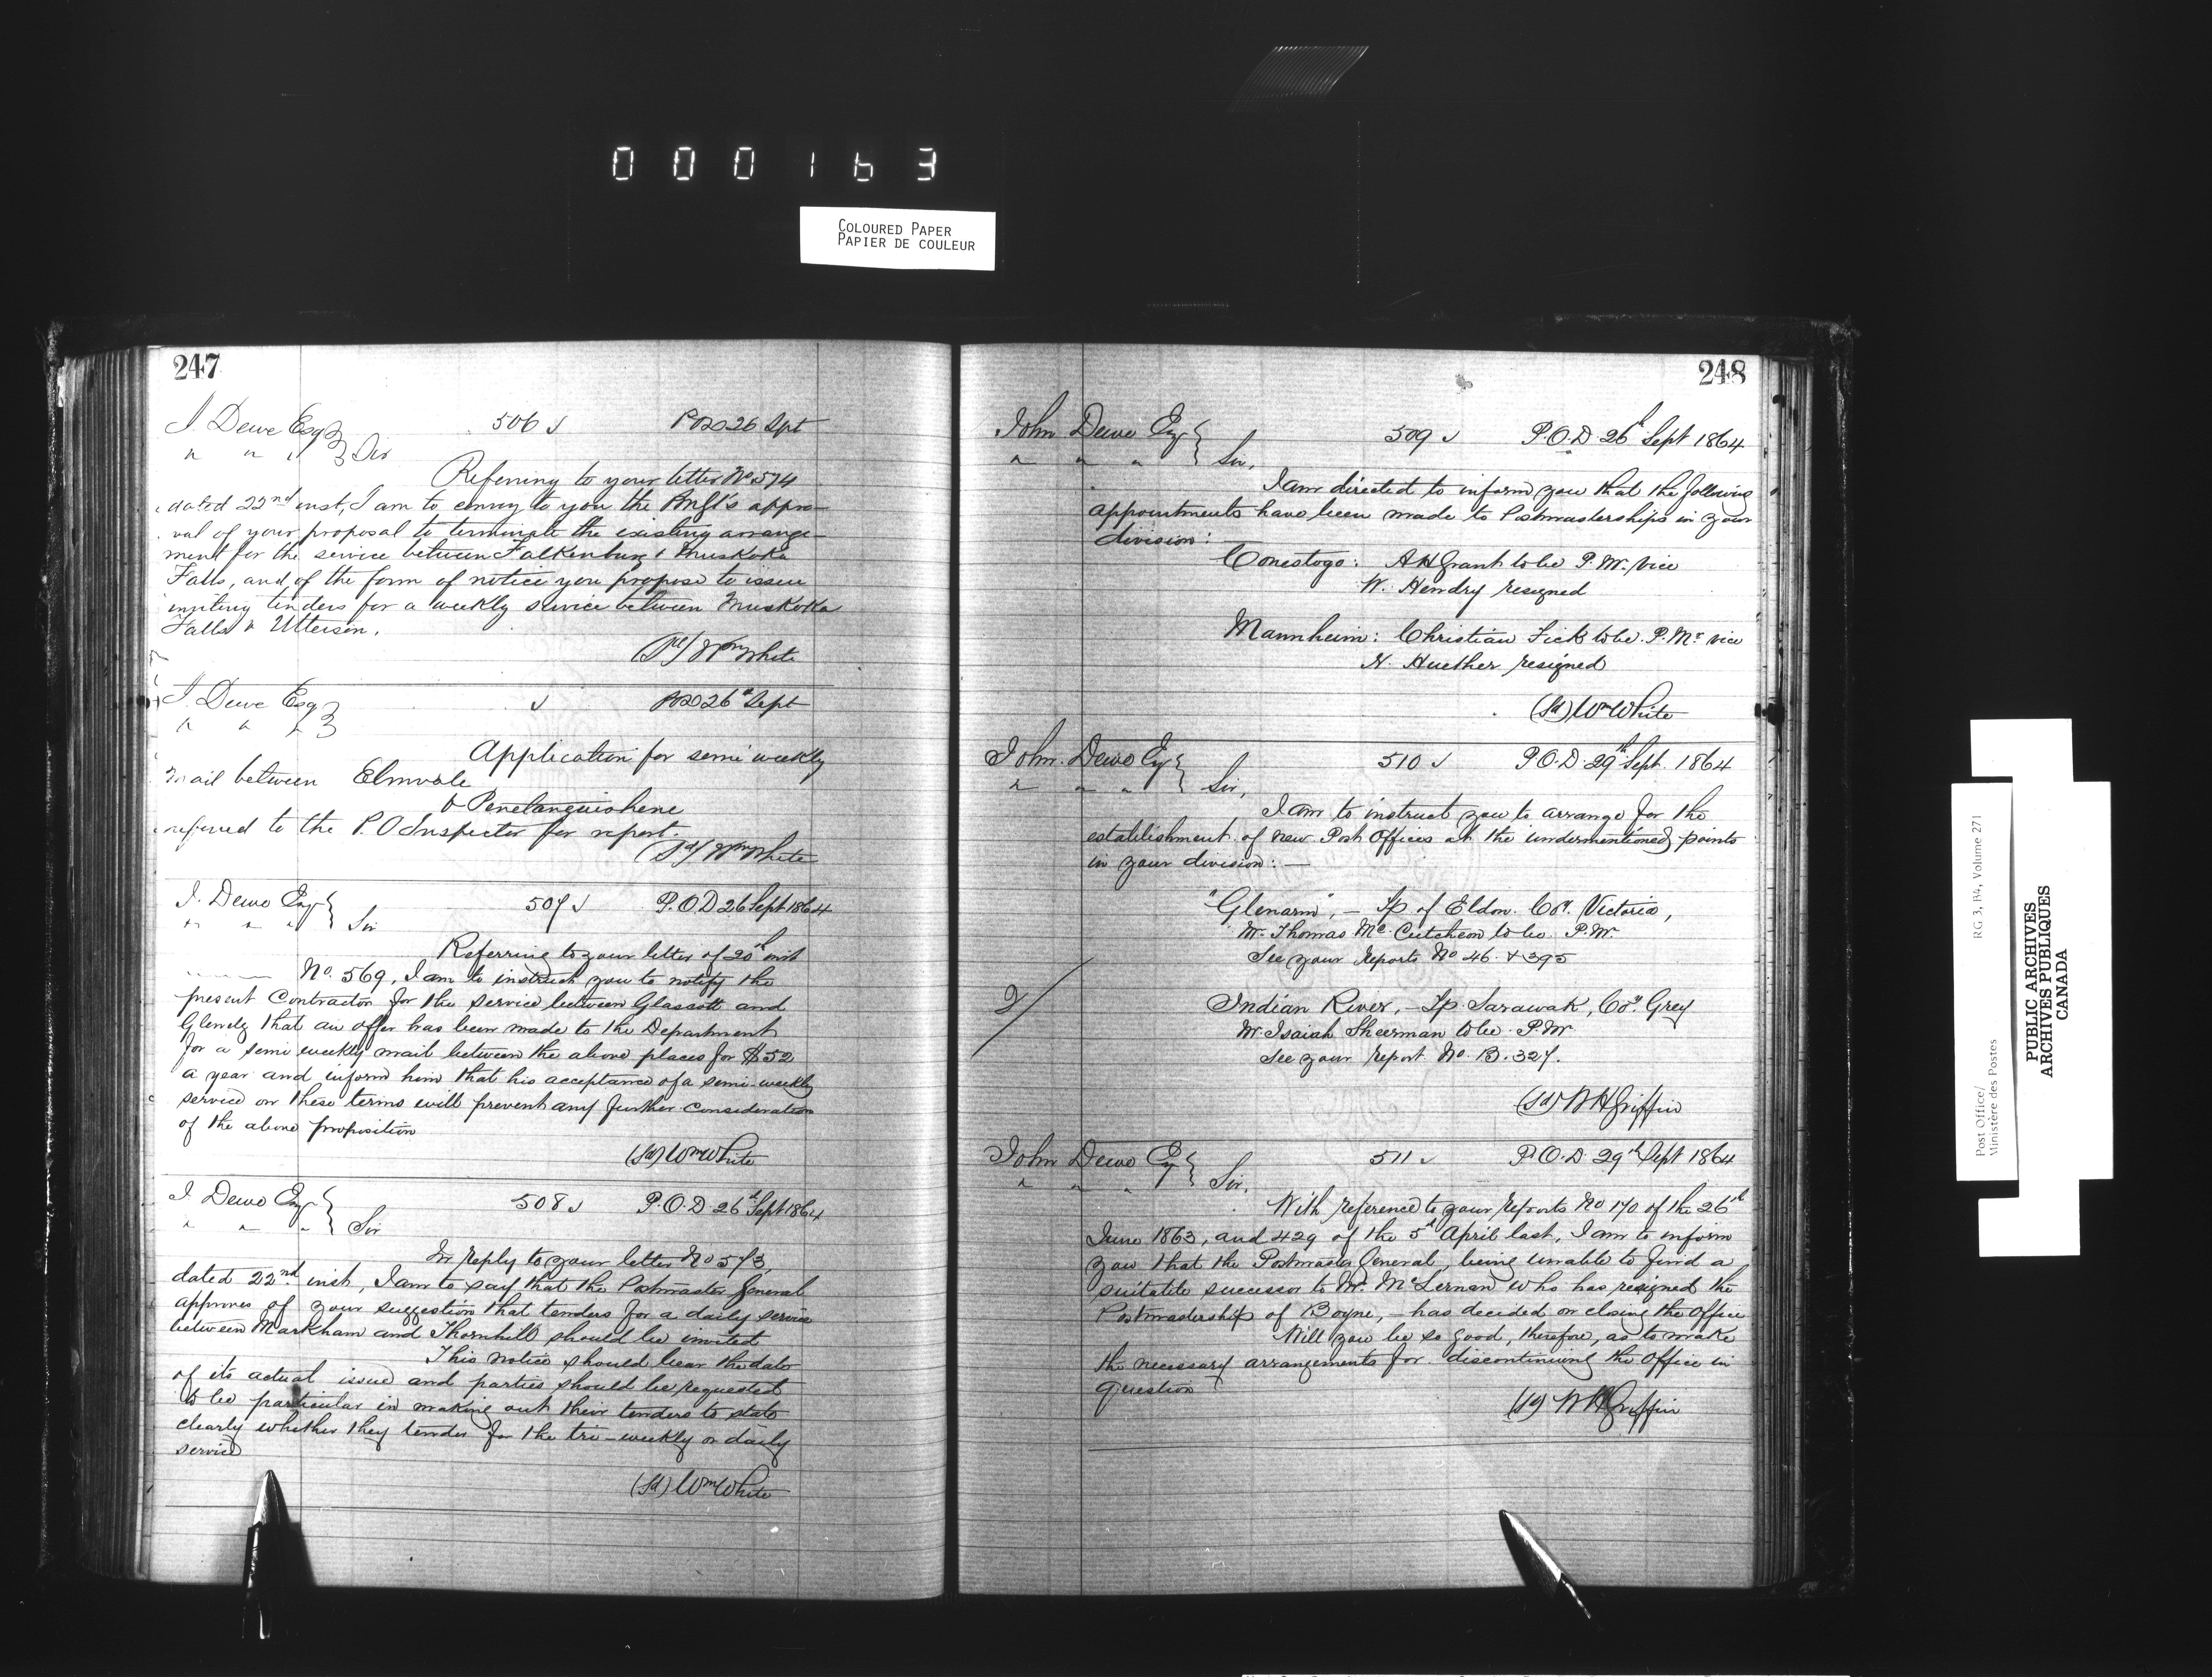 000163
COLOURED PAPER
PAPIER DE COULEUR
247
J. Dewe Esq 506 POD 26 Spt
" " " Sir
Referring to your letter No 574
dated 22nd inst, I am to convey to you the PMGl's appro-
val of your proposal to terminate the existing arrange-
ment for the service between Falkenburg & Muskoka
Falls, and of the form of notice you propose to issue
inviting tenders for a weekly service between Muskoka
Falls & Utterson.
(Sd) Wm White
J. Dewe Esq POD 26th Sept
" " "
Application for semi weekly
mail between Elmvale
& Penetanguishene
referred to the P.O Inspector for report.
(Sd) Wm White
J. Dewe Esq 507 P.O.D 26 Sept 1864
" " " Sir
Referring to your letter of 20th inst
No. 569, I am to instruct you to notify the
present Contractor for the service between Glascott and
Glenelg that an offer has been made to the Department
for a semi weekly mail between the above places for $52
a year and inform him that his acceptance of a semi-weekly
service on these terms will prevent any further consideration
of the above proposition
(Sd) Wm White
J. Dewe Esq 508 P.O.D. 26th Sept 1864
" " " Sir
In reply to your letter No 573,
dated 22nd inst, I am to say that the Postmaster General
approves of your suggestion that tenders for a daily service
between Markham and Thornhill should be invited
This notice should bear the date
of its actual issue and parties should be requested
to be particular in making out their tenders to state
clearly whether they tender for the tri-weekly or daily
service
(Sd) Wm White
248
John Dewe Esq 509 P.O.D 26th Sept 1864
" " " Sir,
I am directed to inform you that the following
appointments have been made to Postmasterships in your
division:
Conestogo: A H Grant to be P.M. vice
W. Hendry resigned
Mannheim: Christian Fick to be P.Mr vice
H. Huether resigned
(Sd) Wm White
John Dewe Esq 510 P.O.D. 29th Sept. 1864
" " " Sir,
I am to instruct you to arrange for the
establishment of new Post Offices at the undermentioned points
in your division: —
"Glenarm", — Tp of Eldon. Coy. Victoria,
Mr. Thomas Mc.Cutcheon to be P.M.
See your Reports No 46. & 395
Indian River, — Tp. Sarawak, Coy. Grey
Mr. Isaiah Sheerman to be P.M.
See your Report No. B. 327.
(Sd) W H Griffin
John Dewe Esq 511 P.O.D. 29th Sept 1864
" " " Sir,
With reference to your Reports No 170 of the 26th
June 1863, and 429 of the 5th April last, I am to inform
you that the Postmaster General, being unable to find a
suitable successor to Mr. McLernan who has resigned the
Postmastership of Boyne, — has decided on closing the office
Will you be so good, therefore, as to make
the necessary arrangements for discontinuing the Office in
question
(Sd) W H Griffin
Post Office/
Ministère des Postes
RG 3, B4, Volume 271
PUBLIC ARCHIVES
ARCHIVES PUBLIQUES
CANADA